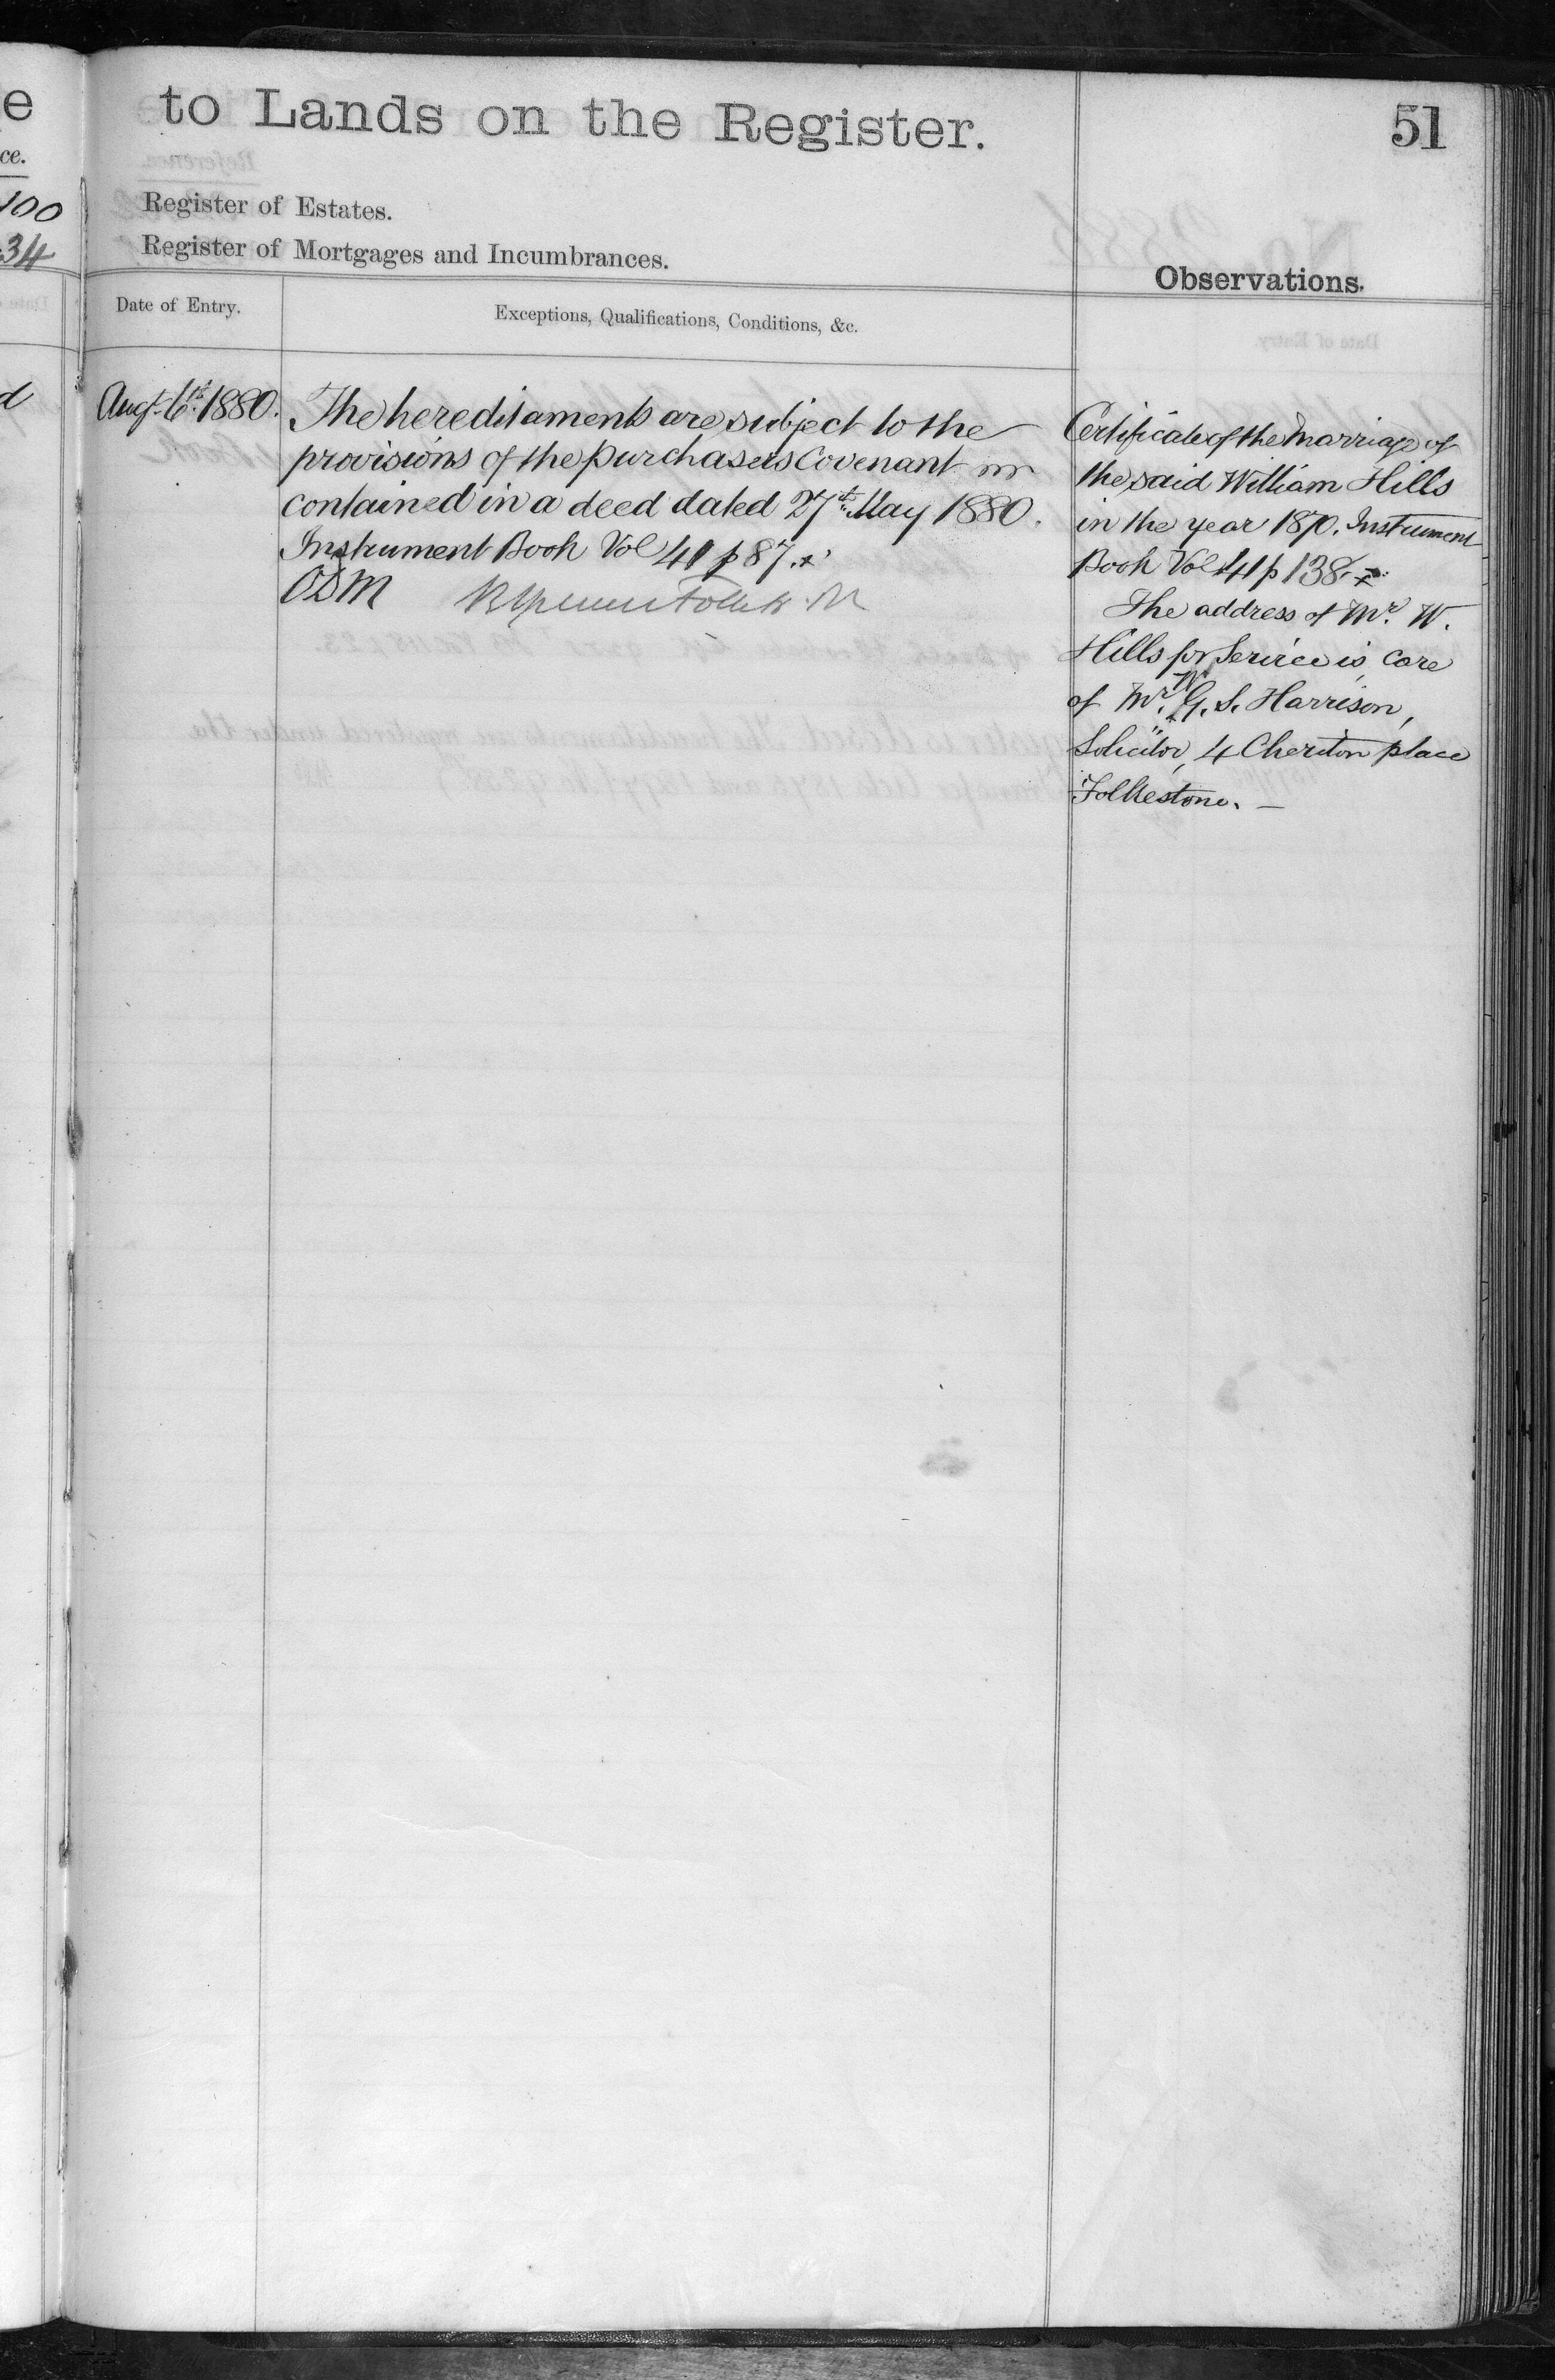 e
ce.
100
34
d
to Lands on the Register.
51
Register of Estates.
Register of Mortgages and Incumbrances.
Observations.
Date of Entry.
Exceptions, Qualifications, Conditions, &c.
Augt. 6th. 1880.
The hereditaments are subject to the
provisions of the purchasers Covenant
contained in a deed dated 27th. May 1880.
Instrument Book Vol 41 p 87. x
Certificate of the Marriage of
the said William Hills
in the year 1870. Instrument
Book Vol 41 p 138. x
The address of Mr. W.
Hills for Service is, care
of Mr. W. G. S. Harrison,
Solicitor, 4 Cheriton place
Folkestone. —